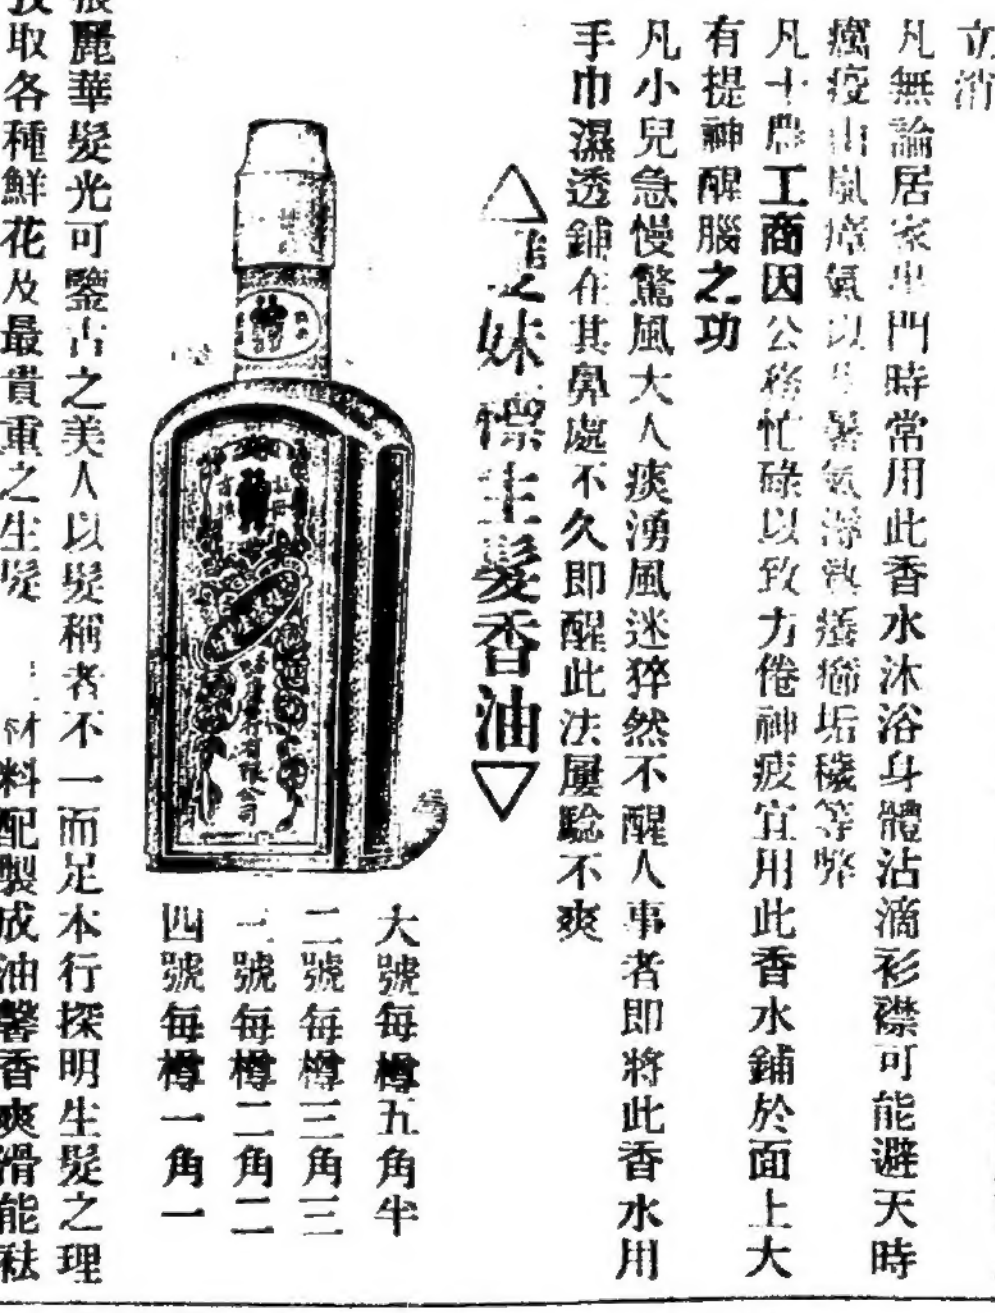 立消
凡無論居家出門時常用此香水沐浴身體沾滴衫襟可能避天時
癘疫山嵐瘴氣以及暑氣痱㾦癬癤垢穢等弊
凡士農工商因公務忙碌以致力倦神疲宜用此香水鋪於面上大
有提神醒腦之功
凡小兒急慢驚風大人痰湧風迷猝然不醒人事者即將此香水用
手巾濕透鋪在其鼻處不久即醒此法屢騐不爽
△雙妹嘜生髮香油▽
大號每樽五角半
二號每樽三角三
三號每樽二角二
四號每樽一角一
張麗華髮光可鑒古之美人以髮稱者不一而足本行探明生髮之理
取各種鮮花及最貴重之生髮材料配製成油馨香爽滑能袪
有限公司